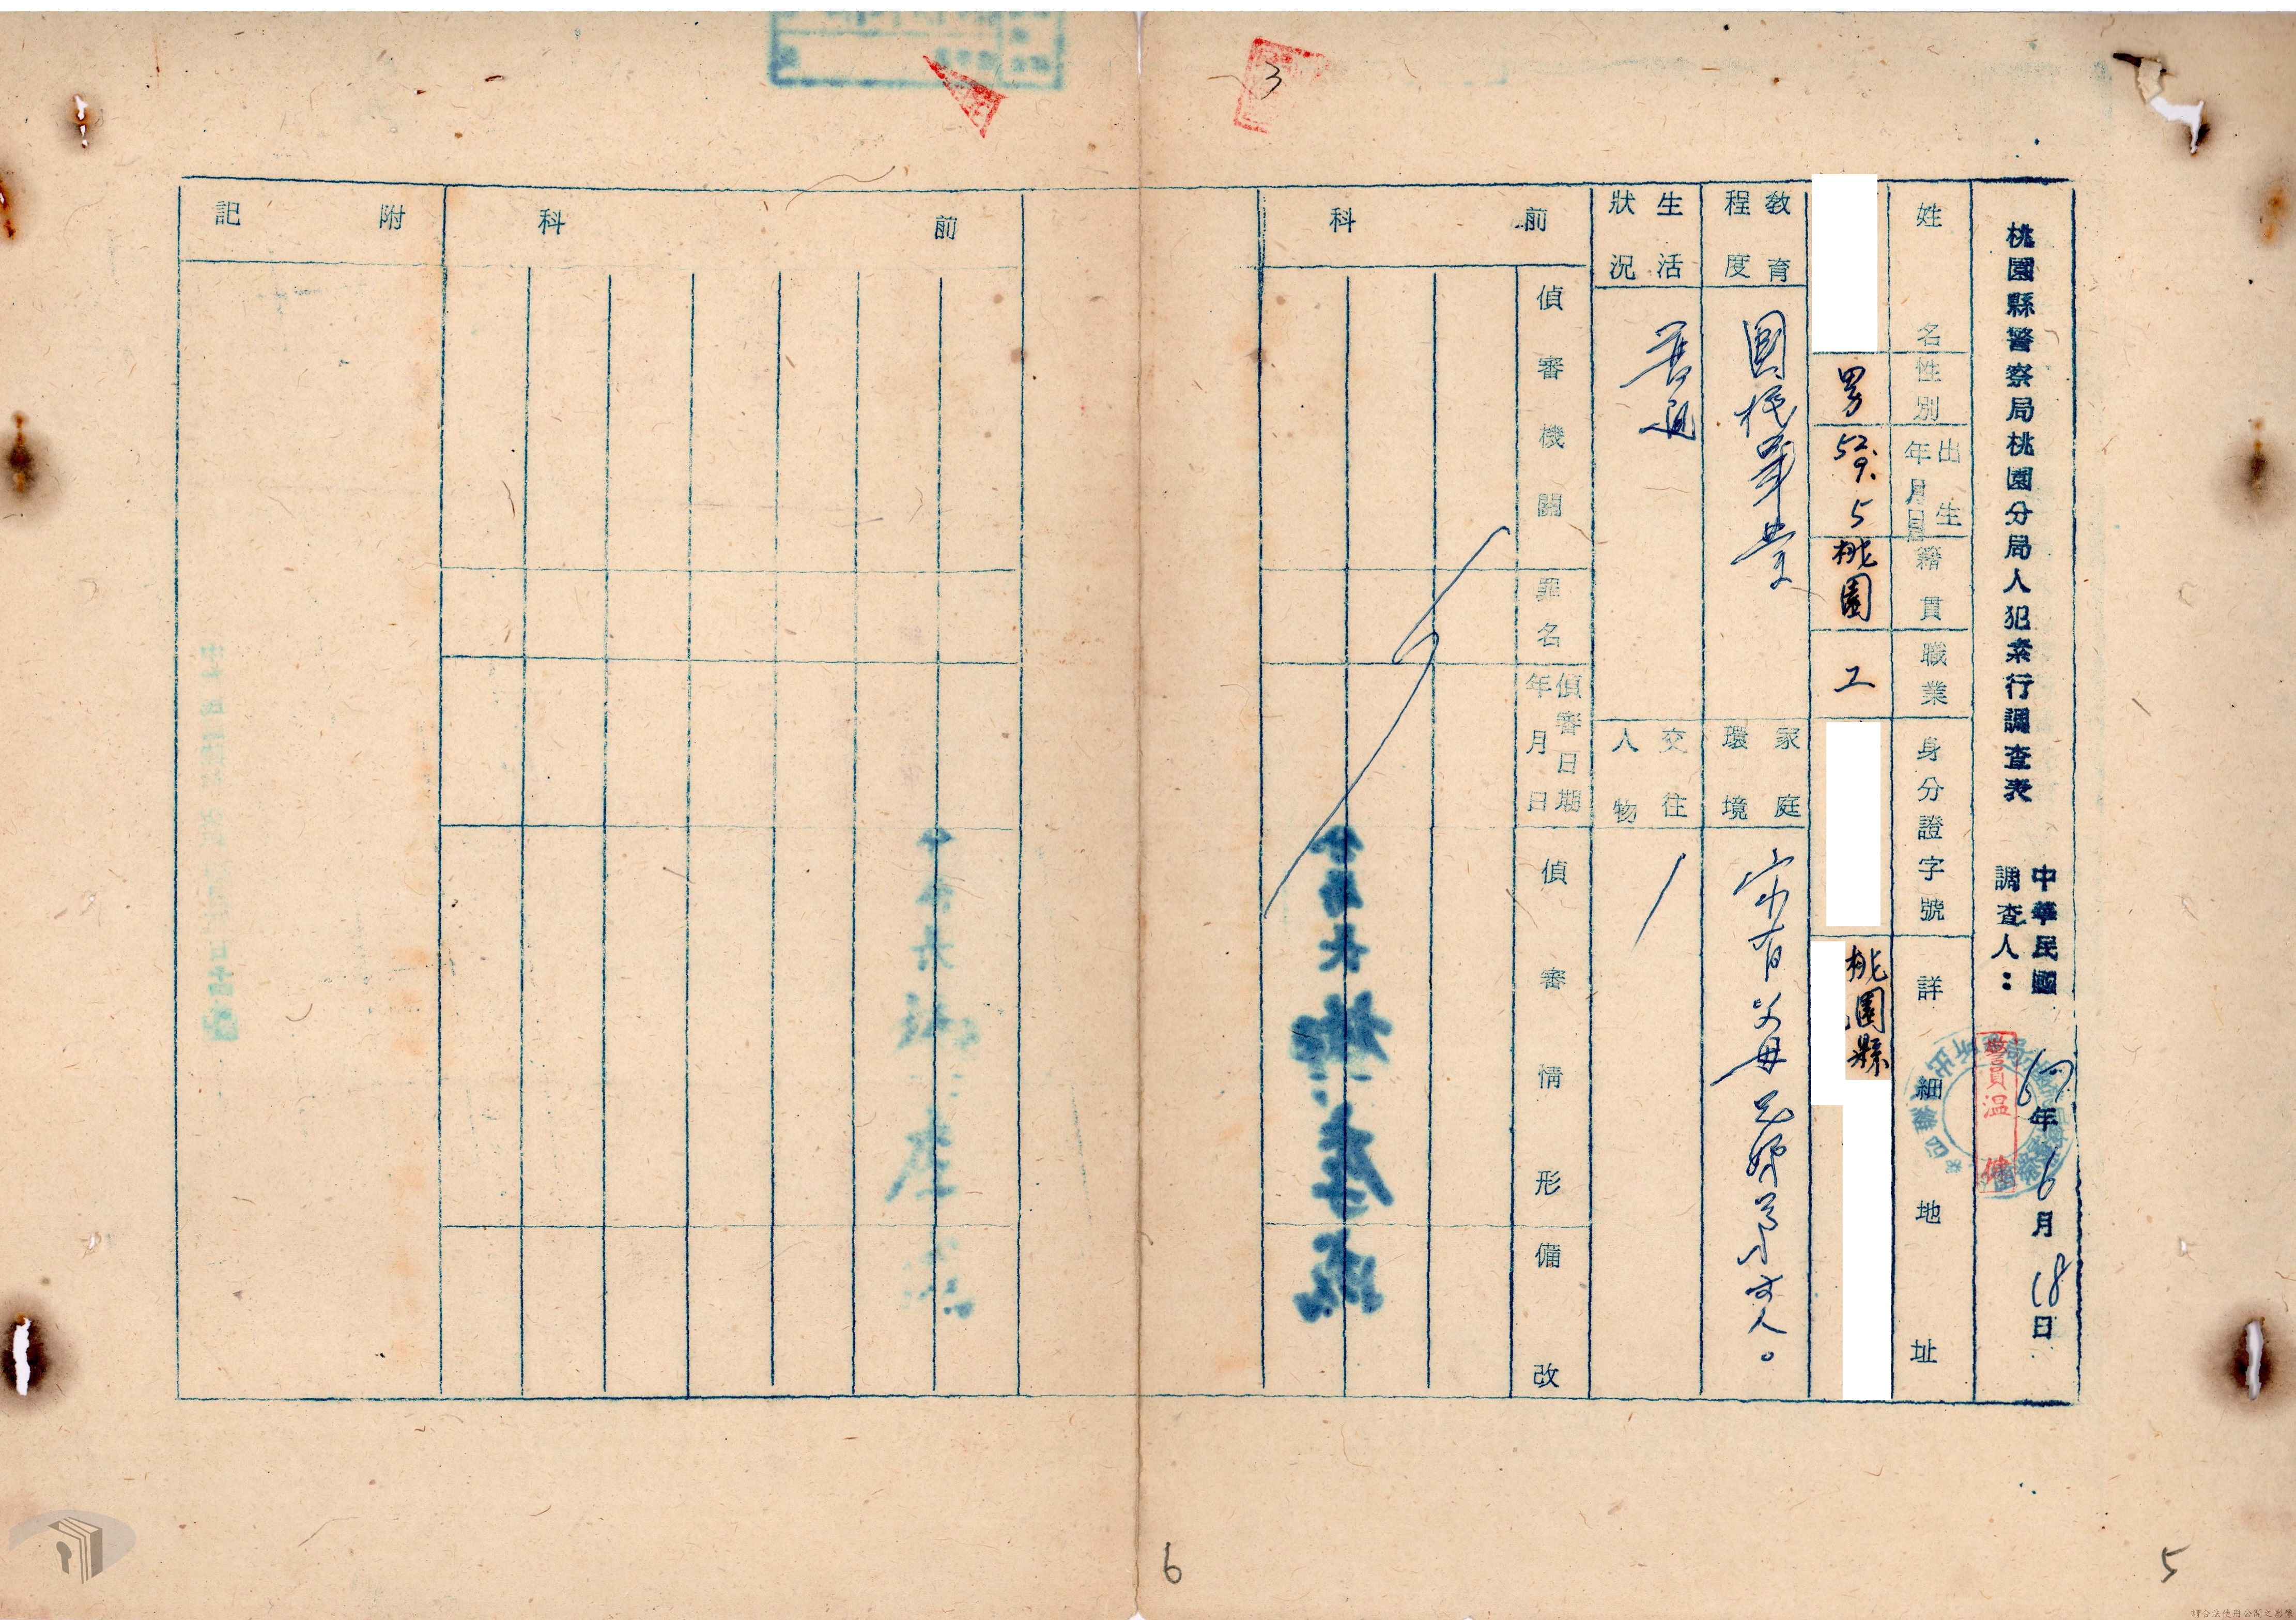 桃園縣警察局桃園分局人犯素行調查表
中華民國67年6月18日
調查人：
警員溫
姓名
性別
男
出生年月日
52.9.5
籍貫
桃園
職業
工
身分證字號
詳細地址
桃園縣
教育程度
國校畢業
家庭環境
家有父母兄
人。
生活狀況
普通
交往人物
前科
偵審機關
罪名
偵審日期年月日
偵審情形
備改
前科
附記
3
6
5
請合法使用公開之影像